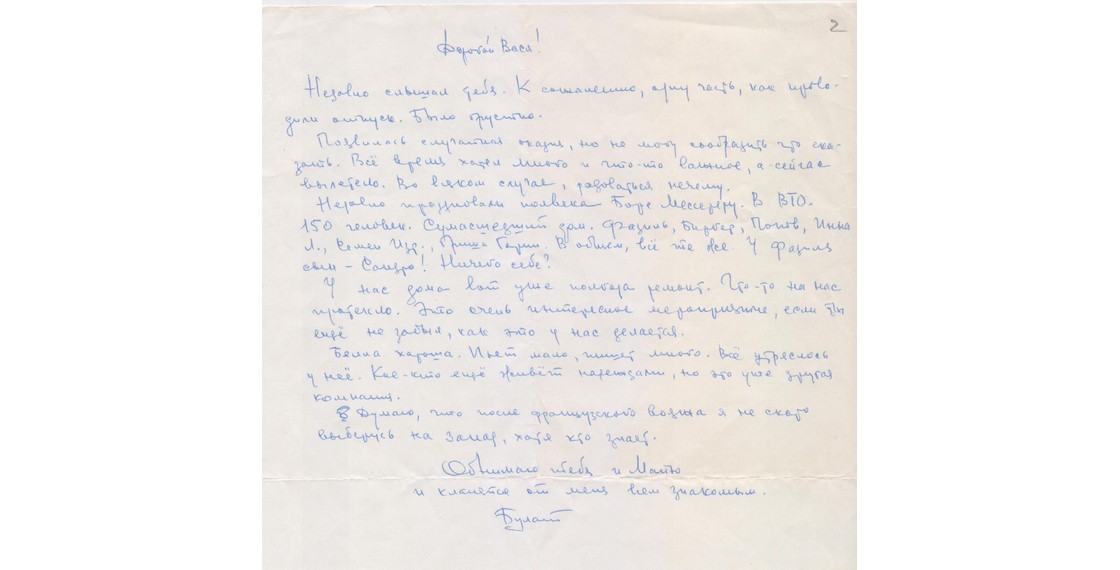 2
Дорогой Вася!
Недавно слышал тебя. К сожалению, одну часть, как прово-
дили отпуск. Было грустно.
Позвилась случайная оказия, но не могу сообразить что ска-
зать. Всё время хотел много и что-то важное, а сейчас
вылетело. Во всяком случае, радоваться нечему.
Недавно праздновали полвека Боре Мессереру. В ВТО.
150 человек. Сумасшедший дом. Фазиль, Битов, Попов, Инна
Л., Семен Изр., Гриша Горин. В общем, всё те же. У Фазиля
сын – Сандро! Ничего себе?
У нас дома вот уже полгода ремонт. Что-то на нас
протекло. Это очень интересное мероприятие, если ты
ещё не забыл, как это у нас делается.
Белла хороша. Пьет мало, пишет много. Всё утряслось
у неё. Кое-кто ещё живёт надеждами, но это уже другая
компания.
Думаю, что после французского вояжа я не скоро
выберусь на Запад, хотя кто знает.
Обнимаю тебя и Майю
и кланяйся от меня всем знакомым.
Булат